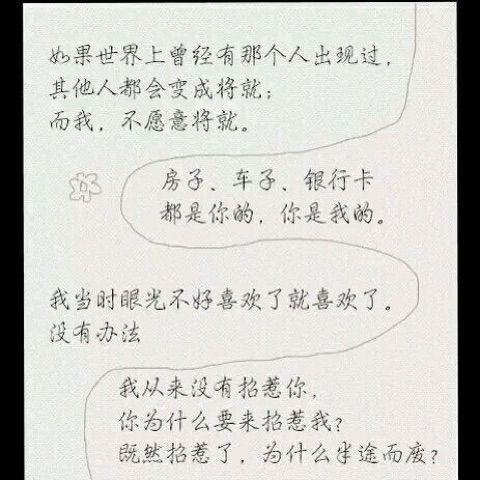 如果世界上曾经有那个人出现过，
其他人都会变成将就；
而我，不愿意将就。
房子、车子、银行卡
都是你的，你是我的。
我当时眼光不好喜欢了就喜欢了。
没有办法
我从来没有招惹你，
你为什么要来招惹我？
既然招惹了，为什么半途而废？